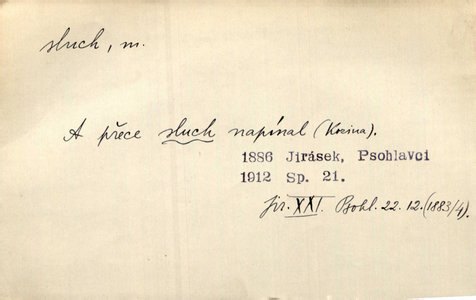 sluch, m.
A přece sluch napínal (Kozina).
1886 Jirásek, Psohlavci
1912 Sp. 21.
Jir. XXI. Bohl. 22.12.(1883/4).